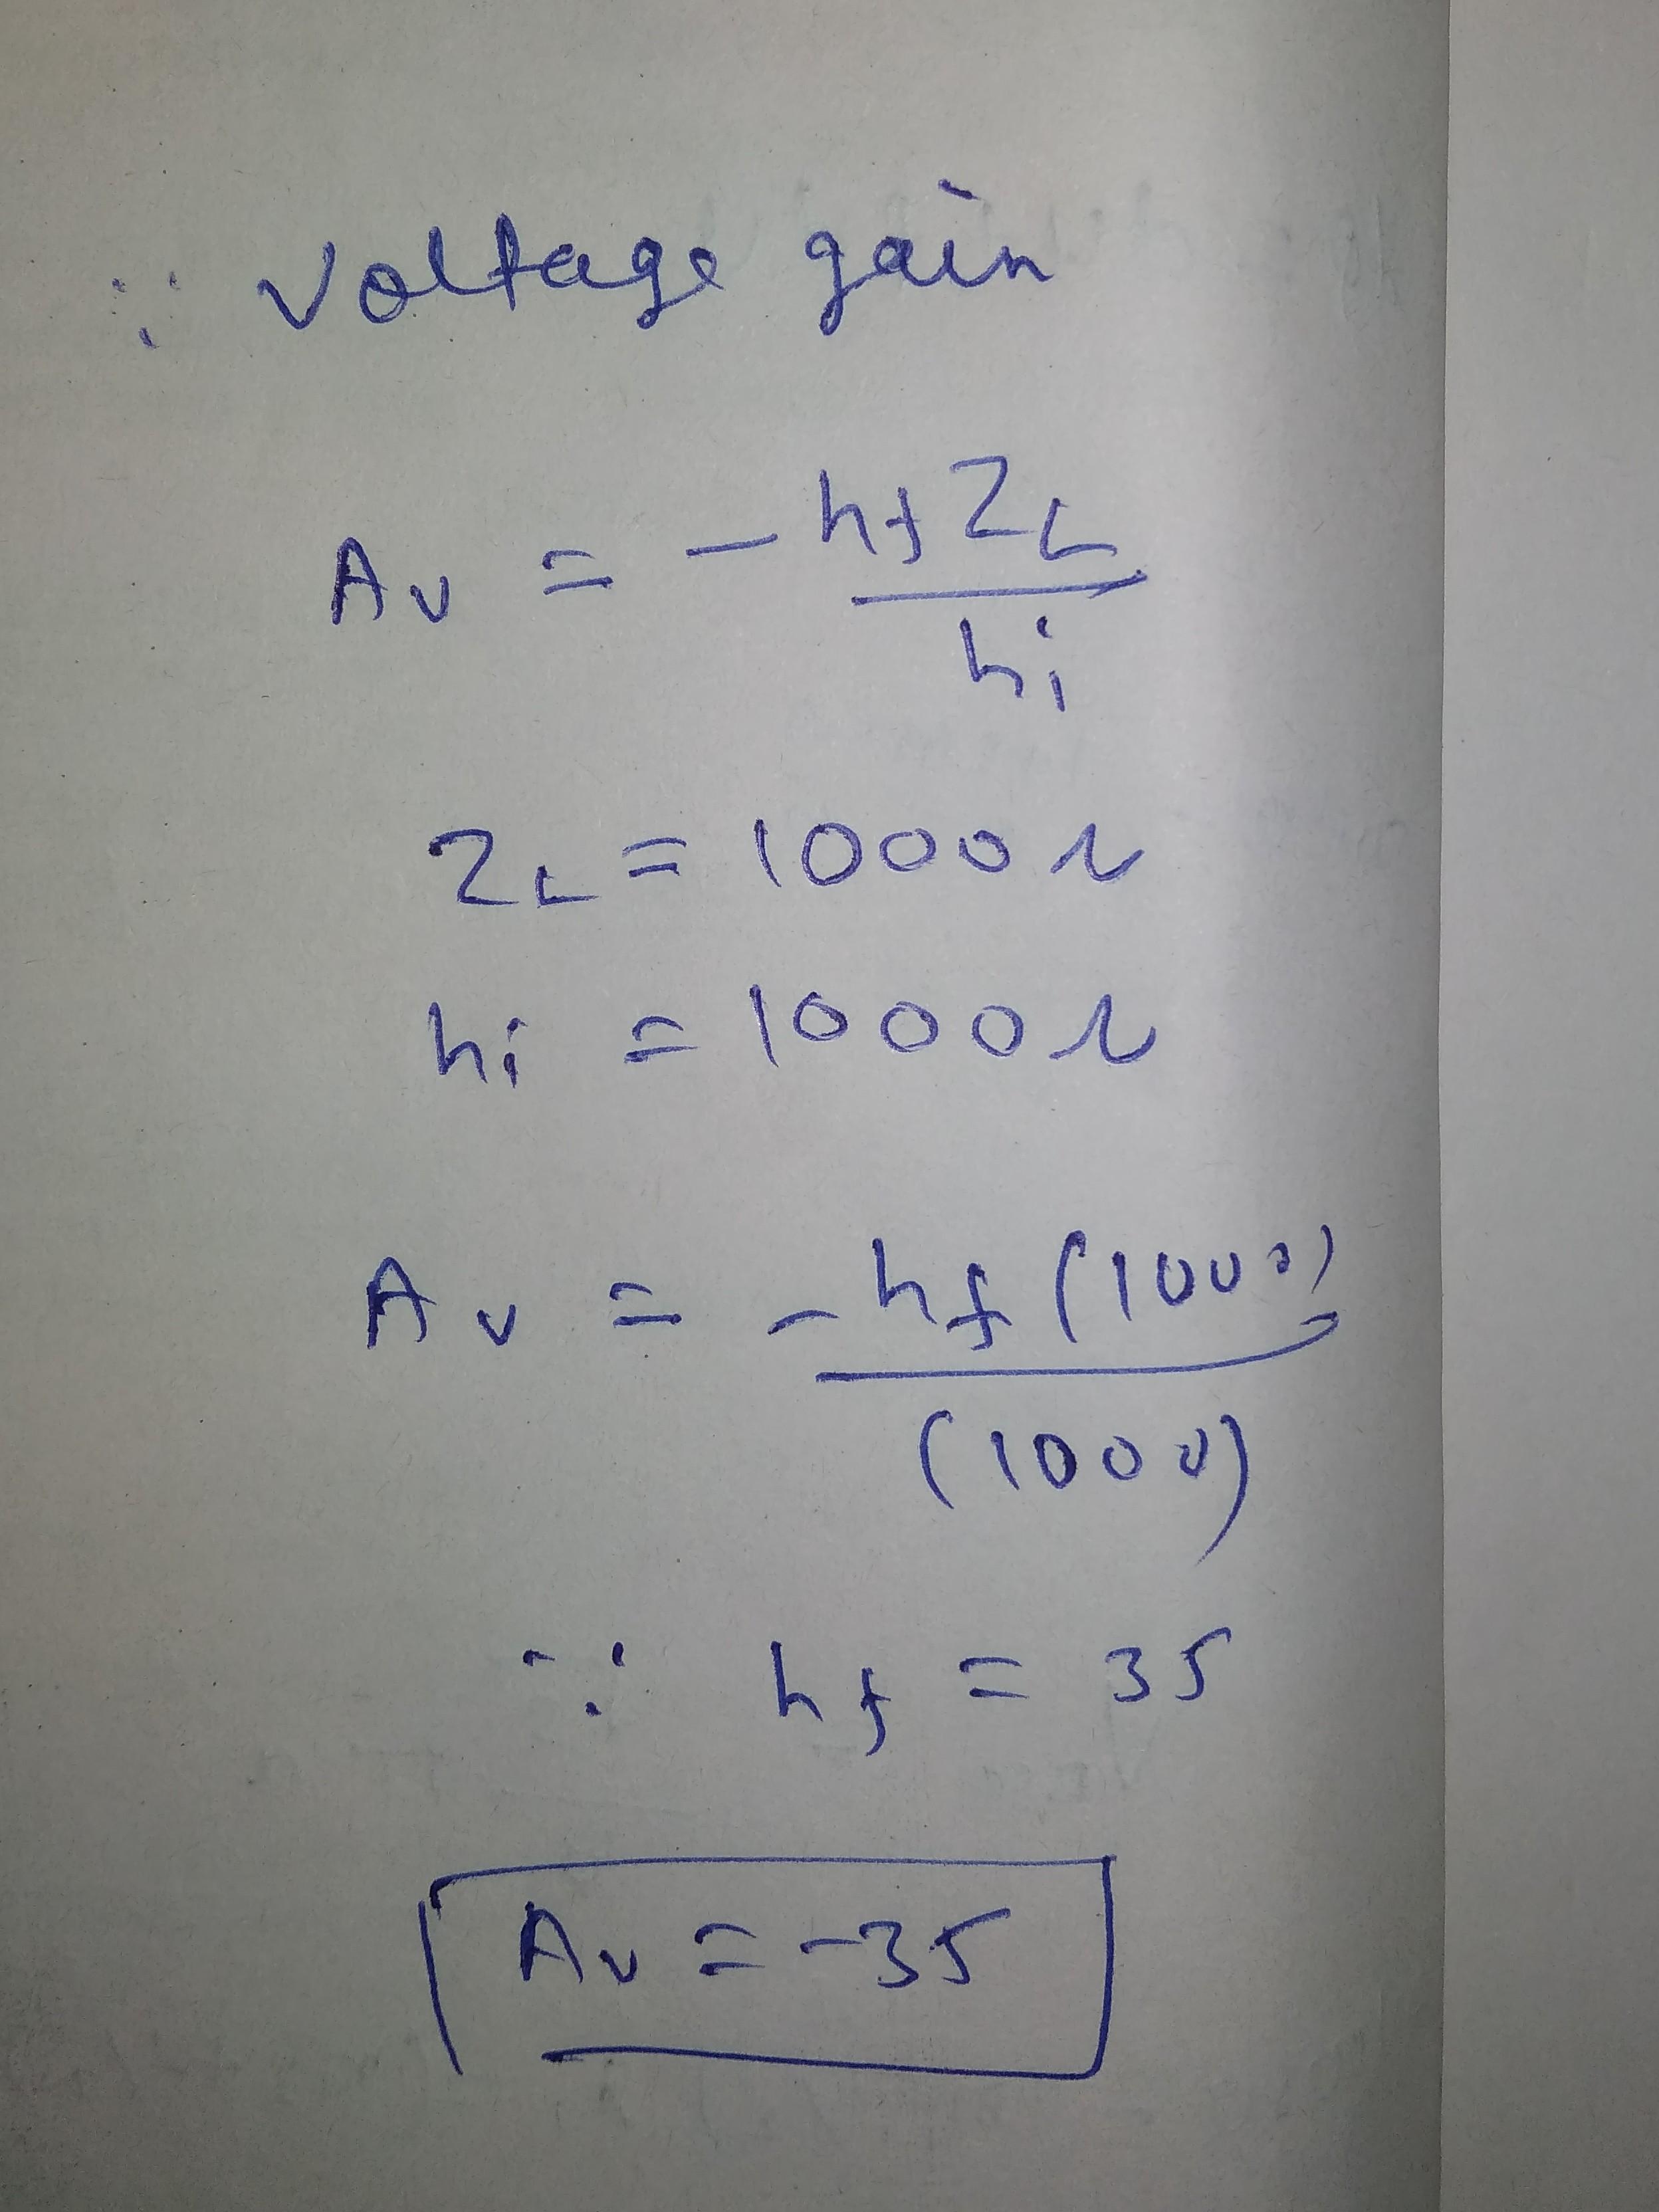 ∵ Voltage gain
Av = - hf ZL / hi
ZL = 1000 Ω
hi = 1000 Ω
Av = - hf (1000) / (1000)
∵ hf = 35
Av = -35